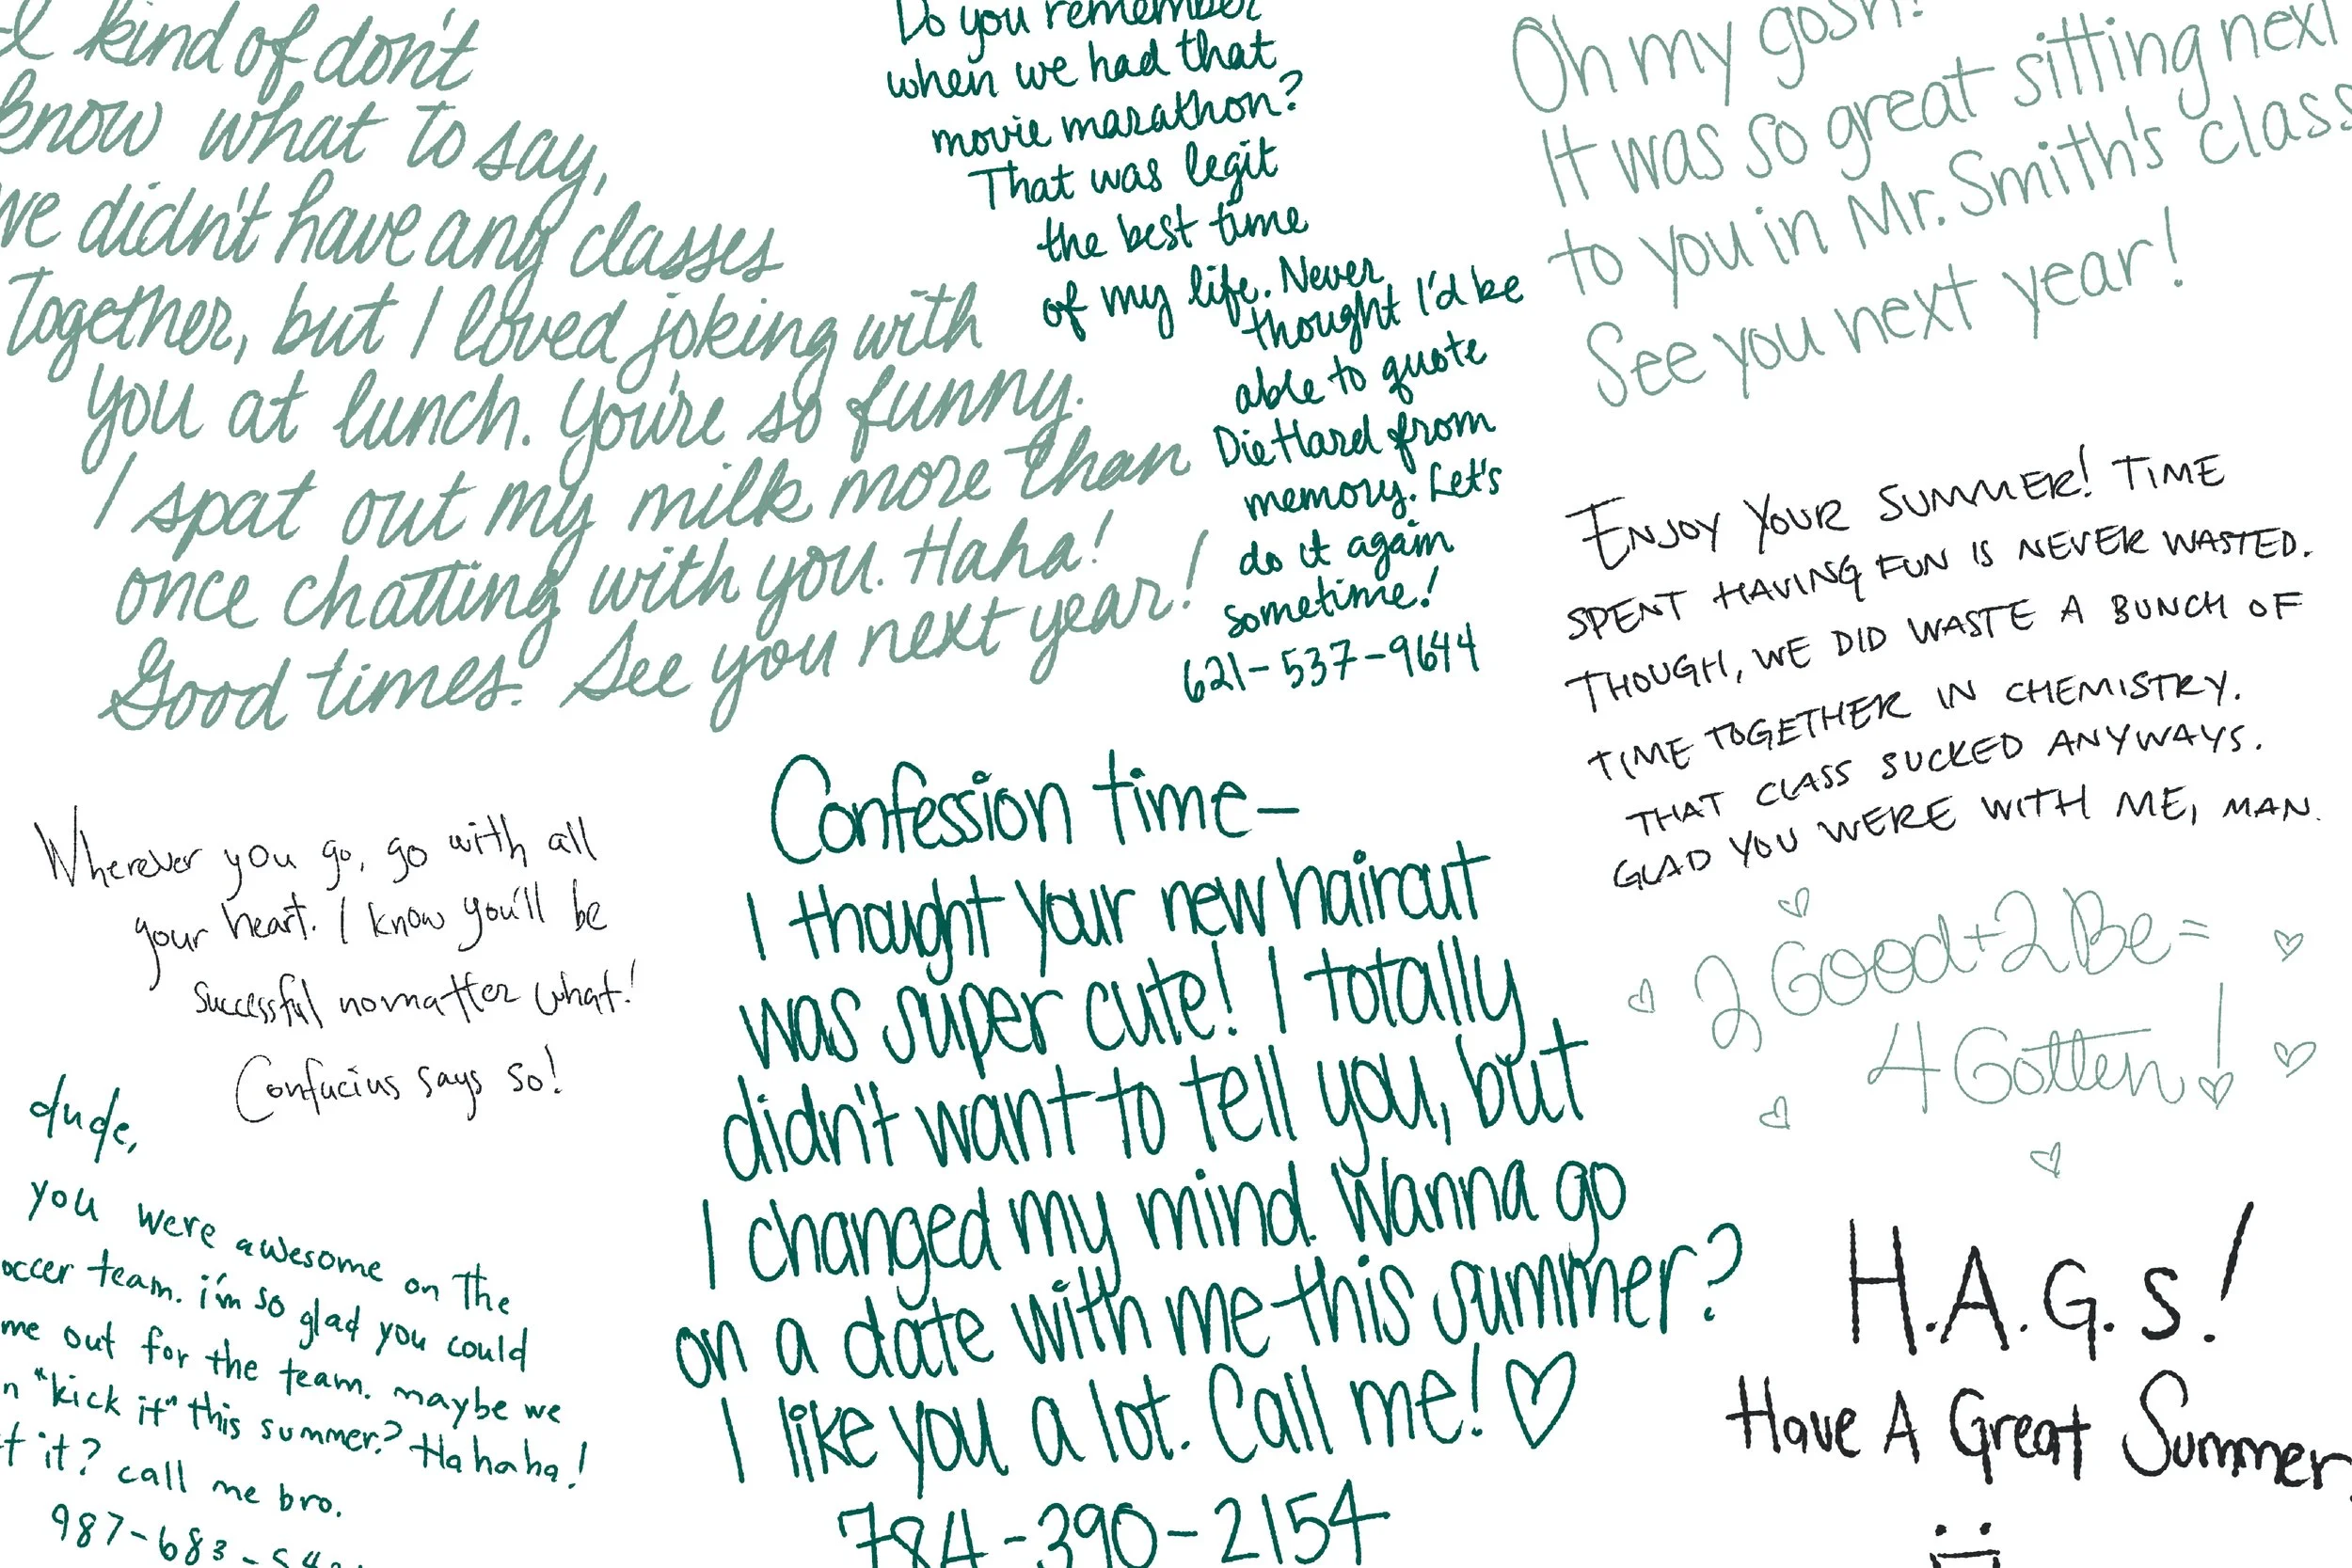 I kind of don't
know what to say,
We didn't have any classes
Together, but I loved joking with
you at lunch. You're so funny.
I spat out my milk more than
once chatting with you. Haha!
Good times. See you next year!
Do you remember
when we had that
movie marathon?
That was legit
the best time
of my life. Never
thought I'd be
able to quote
Die Hard from
memory. Let's
do it again
sometime!
621-537-9644
Oh my gosh!
It was so great sitting next
to you in Mr. Smith's class
See you next year!
ENJOY YOUR SUMMER! TIME
SPENT HAVING FUN IS NEVER WASTED.
THOUGH, WE DID WASTE A BUNCH OF
TIME TOGETHER IN CHEMISTRY.
THAT CLASS SUCKED ANYWAYS.
GLAD YOU WERE WITH ME, MAN.
Wherever you go, go with all
your heart. I know you'll be
successful no matter what!
Confucius says so!
Confession time-
I thought your new haircut
was super cute! I totally
didn't want to tell you, but
I changed my mind. Wanna go
on a date with me this summer?
I like you a lot. Call me! ♡
784-390-2154
2 Good + 2 Be =
4 Gotten!
dude,
you were awesome on the
occer team. i'm so glad you could
me out for the team. maybe we
n "kick it" this summer? Hahaha!
t it? call me bro.
987-683-
H.A.G.S!
Have A Great Summer.